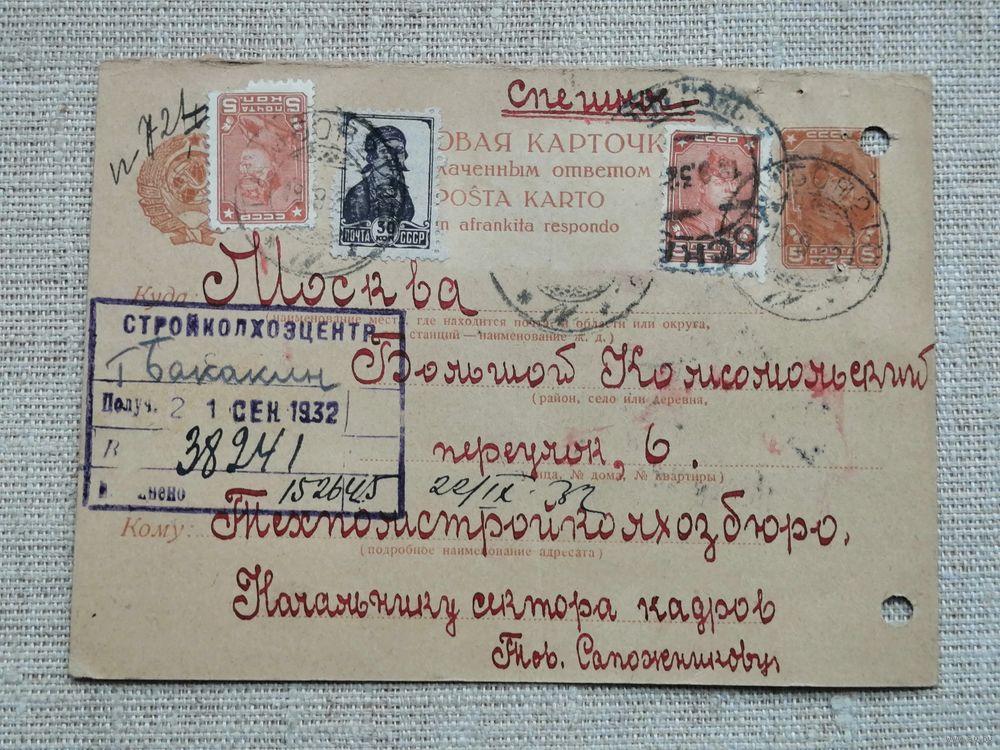 Спешная
№ 724
5 КОП. ПОЧТА 5 КОП.
СССР
ПОЧТА 30 КОП. СССР
СССР
СССР
ОВАЯ КАРТОЧК
аченным ответом
POŜTA KARTO
n afrankita respondo
Куда Москва
(наименование мест, где находится почта, и области или округа,
станций — наименование ж. д.)
СТРОЙКОЛХОЗЦЕНТР
Получ. 21 СЕН 1932
В 38241
152645
Большой Комсомольский
(район, село или деревня,
переулок, 6.
ица, № дома, № квартиры)
22/IX-32
Кому: Техпомстройколхозбюро,
(подробное наименование адресата)
Начальнику сектора кадров
Тов. Сапожникову,